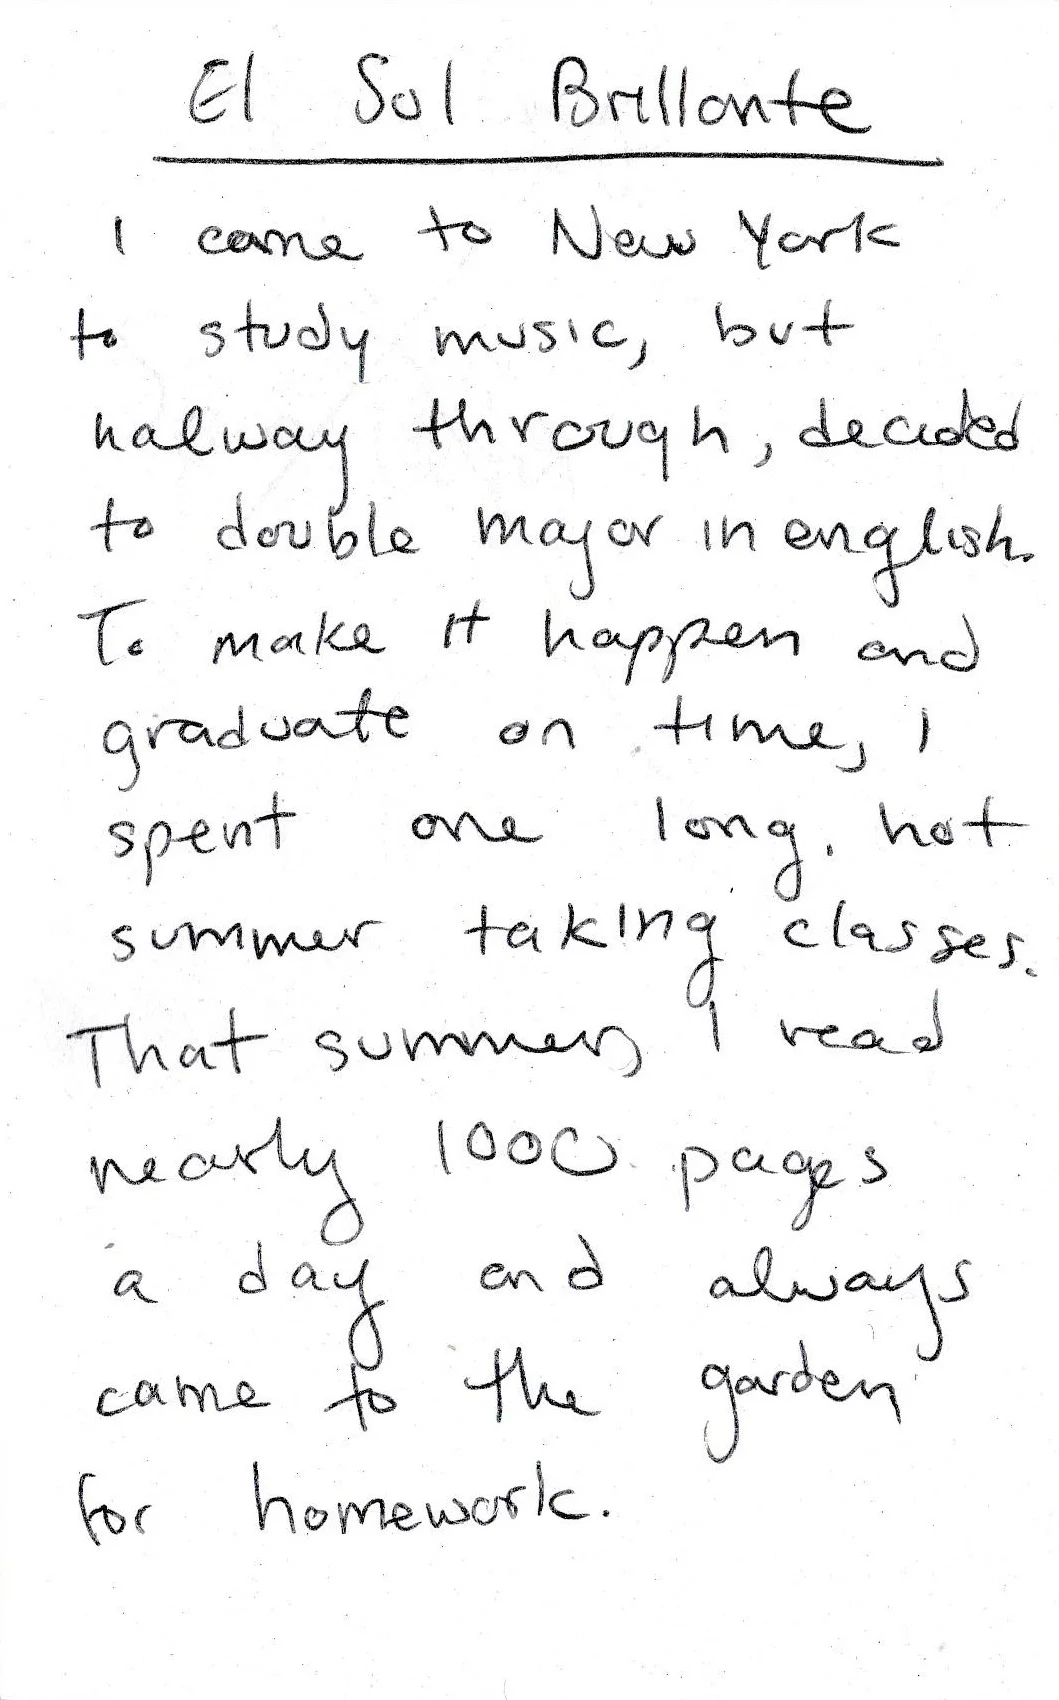 El Sol Brillante
I came to New York
to study music, but
halway through, decided
to double major in english.
To make it happen and
graduate on time, I
spent one long, hot
summer taking classes.
That summer, I read
nearly 1000 pages
a day and always
came to the garden
for homework.